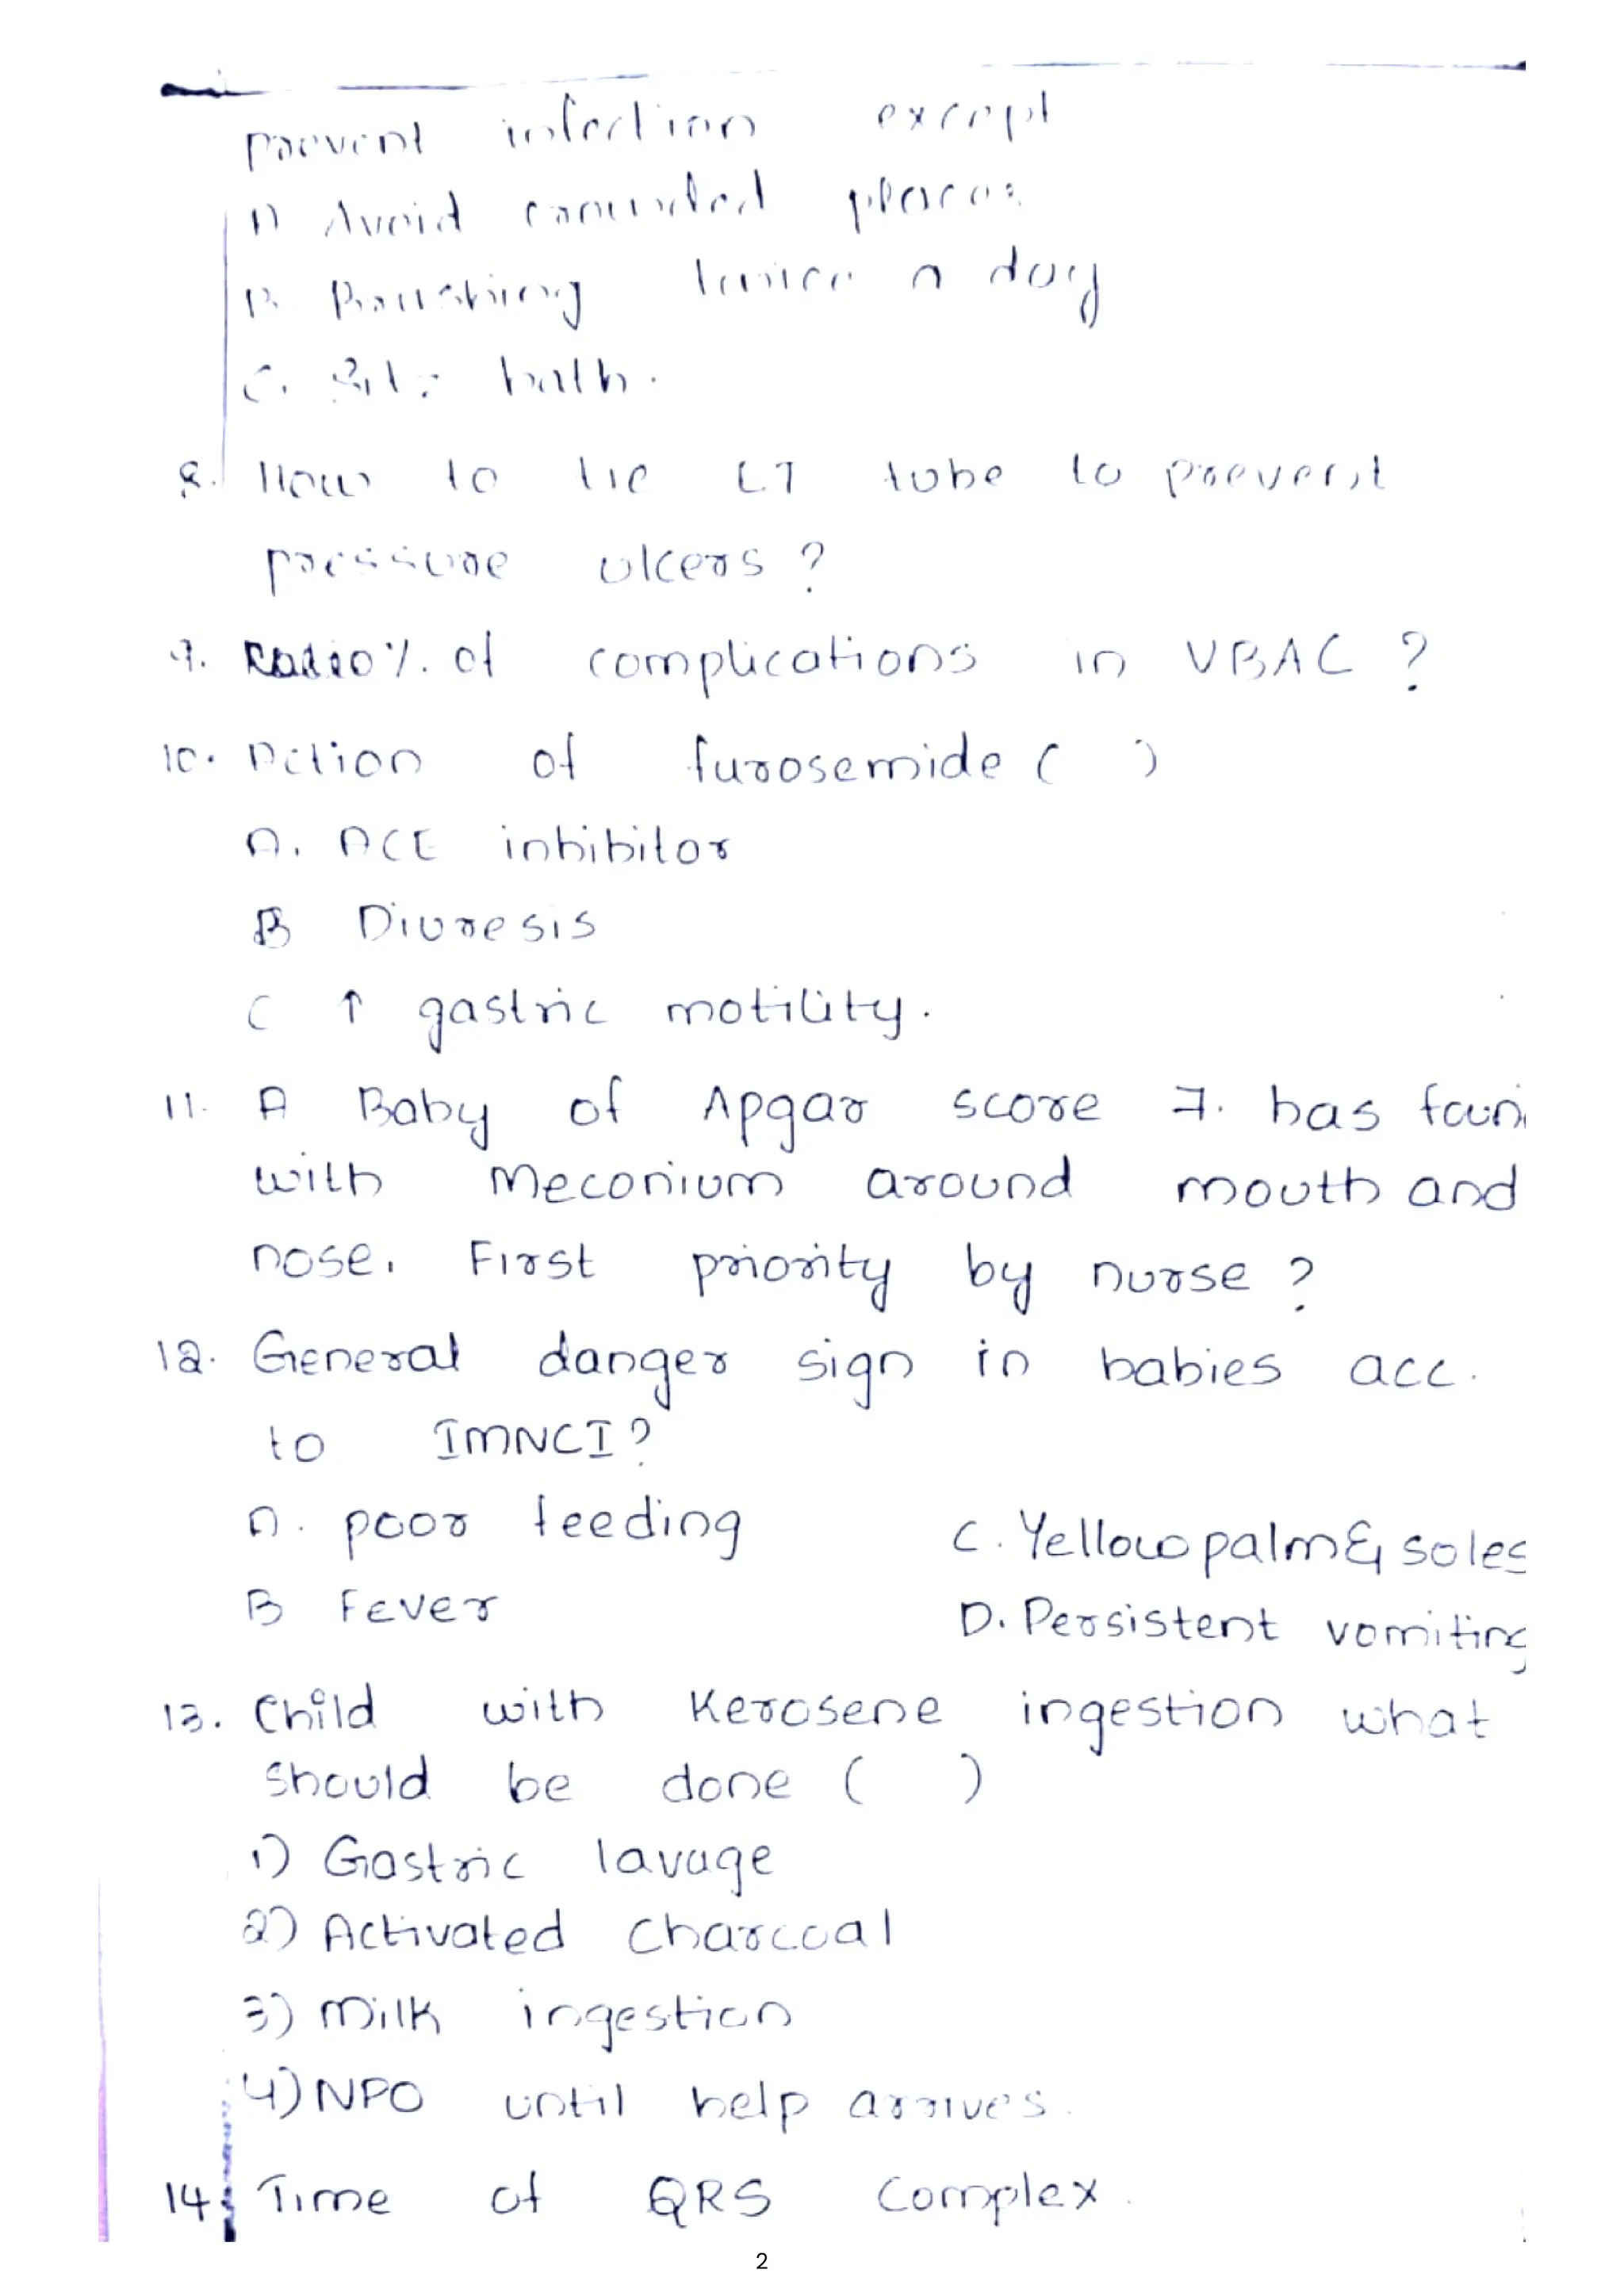 prevent infection except
A) Avoid crowded places
B. Brushing twice a day
C. Sitz bath.
8. How to tie ET tube to prevent
pressure ulcers ?
9. Ratio %. of complications in VBAC ?
10. Action of furosemide ( )
A. ACE inhibitor
B Diuresis
C ↑ gastric motility.
11. A Baby of Apgar score 7. has foun
with Meconium around mouth and
nose. First priority by nurse ?
12. General danger sign in babies acc.
to IMNCI?
A. poor feeding
C. Yellow palm & soles
B Fever
D. Persistent vomiting
13. Child with Kerosene ingestion what
should be done ( )
1) Gastric lavage
2) Activated Charcoal
3) Milk ingestion
4) NPO until help arrives.
14. Time of QRS Complex.
2